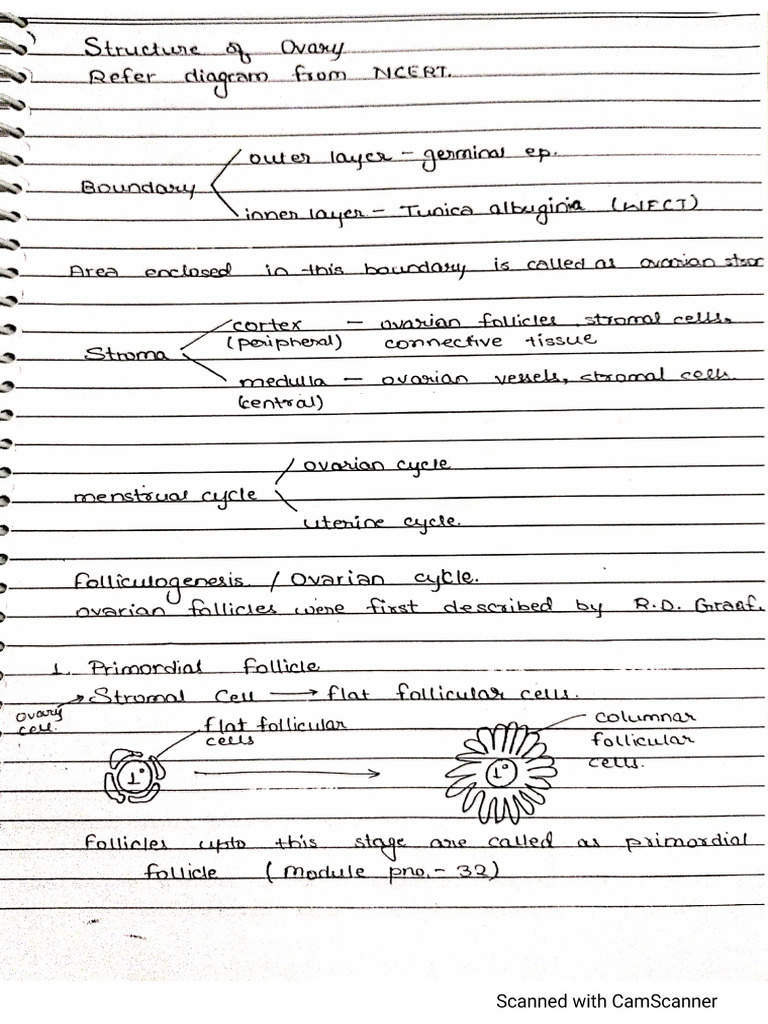 Structure of Ovary
Refer diagram from NCERT.
outer layer - germinal ep.
Boundary
inner layer - Tunica albuginia (WFCT)
Area enclosed in this boundary is called as ovarian
cortex - ovarian follicles, stromal cells,
(peripheral) connective tissue
Stroma
medulla - ovarian vessels, stromal cells.
(central)
ovarian cycle
menstrual cycle
uterine cycle.
Folliculogenesis / Ovarian cycle.
ovarian follicles were first described by R.D. Graaf.
1. Primordial Follicle
Stromal Cell → flat follicular cells.
ovary
cell.
flat follicular
cells
columnar
follicular
cells.
1°
1°
Follicles upto this stage are called as primordial
follicle (Module pno.- 32)
Scanned with CamScanner